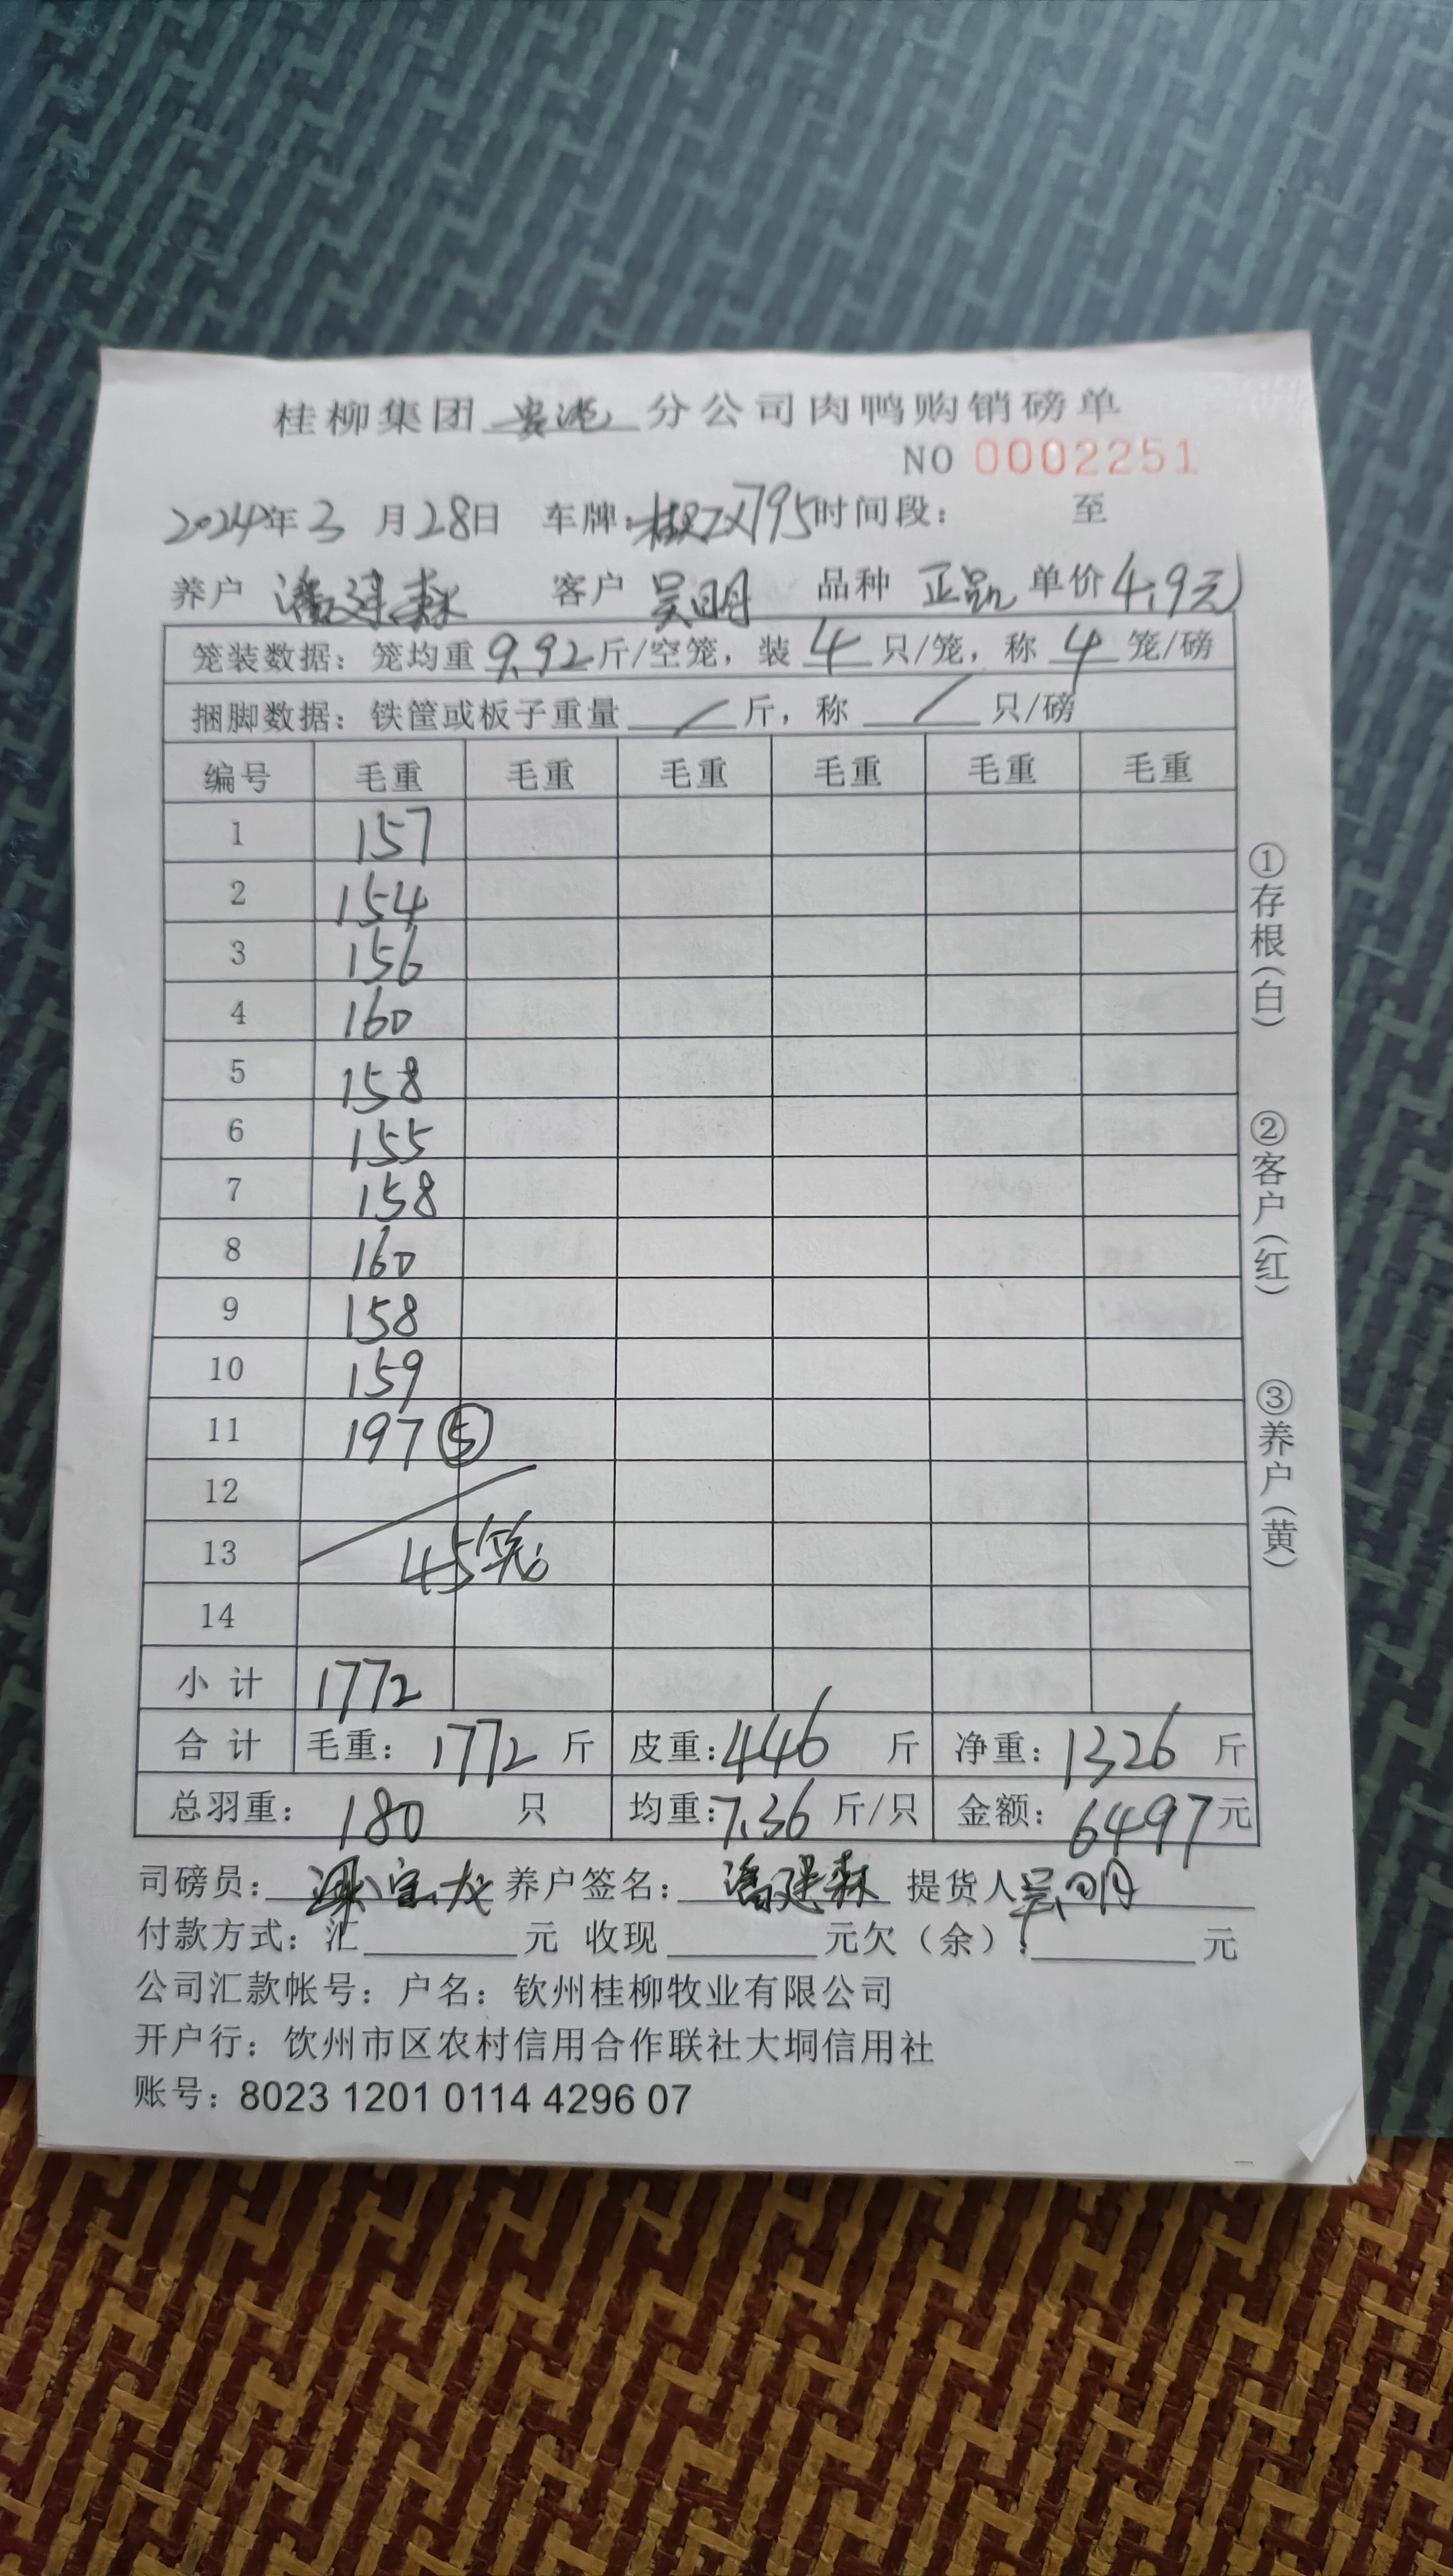 桂柳集团贵港分公司肉鸭购销磅单
NO 0002251
2024年3月28日 车牌:桂RZX795 时间段: 至
养户 潘廷森 客户 吴明 品种 正品 单价4.9元
笼装数据: 笼均重 9.92 斤/空笼, 装 4 只/笼, 称 4 笼/磅
捆脚数据: 铁筐或板子重量 / 斤, 称 / 只/磅
编号 毛重 毛重 毛重 毛重 毛重 毛重
1 157
2 154
3 156
4 160
5 158
6 155
7 158
8 160
9 158
10 159
11 197 ⑤
12
13 45笼
14
小 计 1772
合 计 毛重: 1772 斤 皮重: 446 斤 净重: 1326 斤
总羽重: 180 只 均重: 7.36 斤/只 金额: 6497 元
司磅员: 宝龙 养户签名: 潘廷森 提货人 吴明
付款方式: 汇 元 收现 元欠(余): 元
公司汇款帐号: 户名: 钦州桂柳牧业有限公司
开户行: 饮州市区农村信用合作联社大垌信用社
账号: 8023 1201 0114 4296 07
①存根(白)
②客户(红)
③养户(黄)